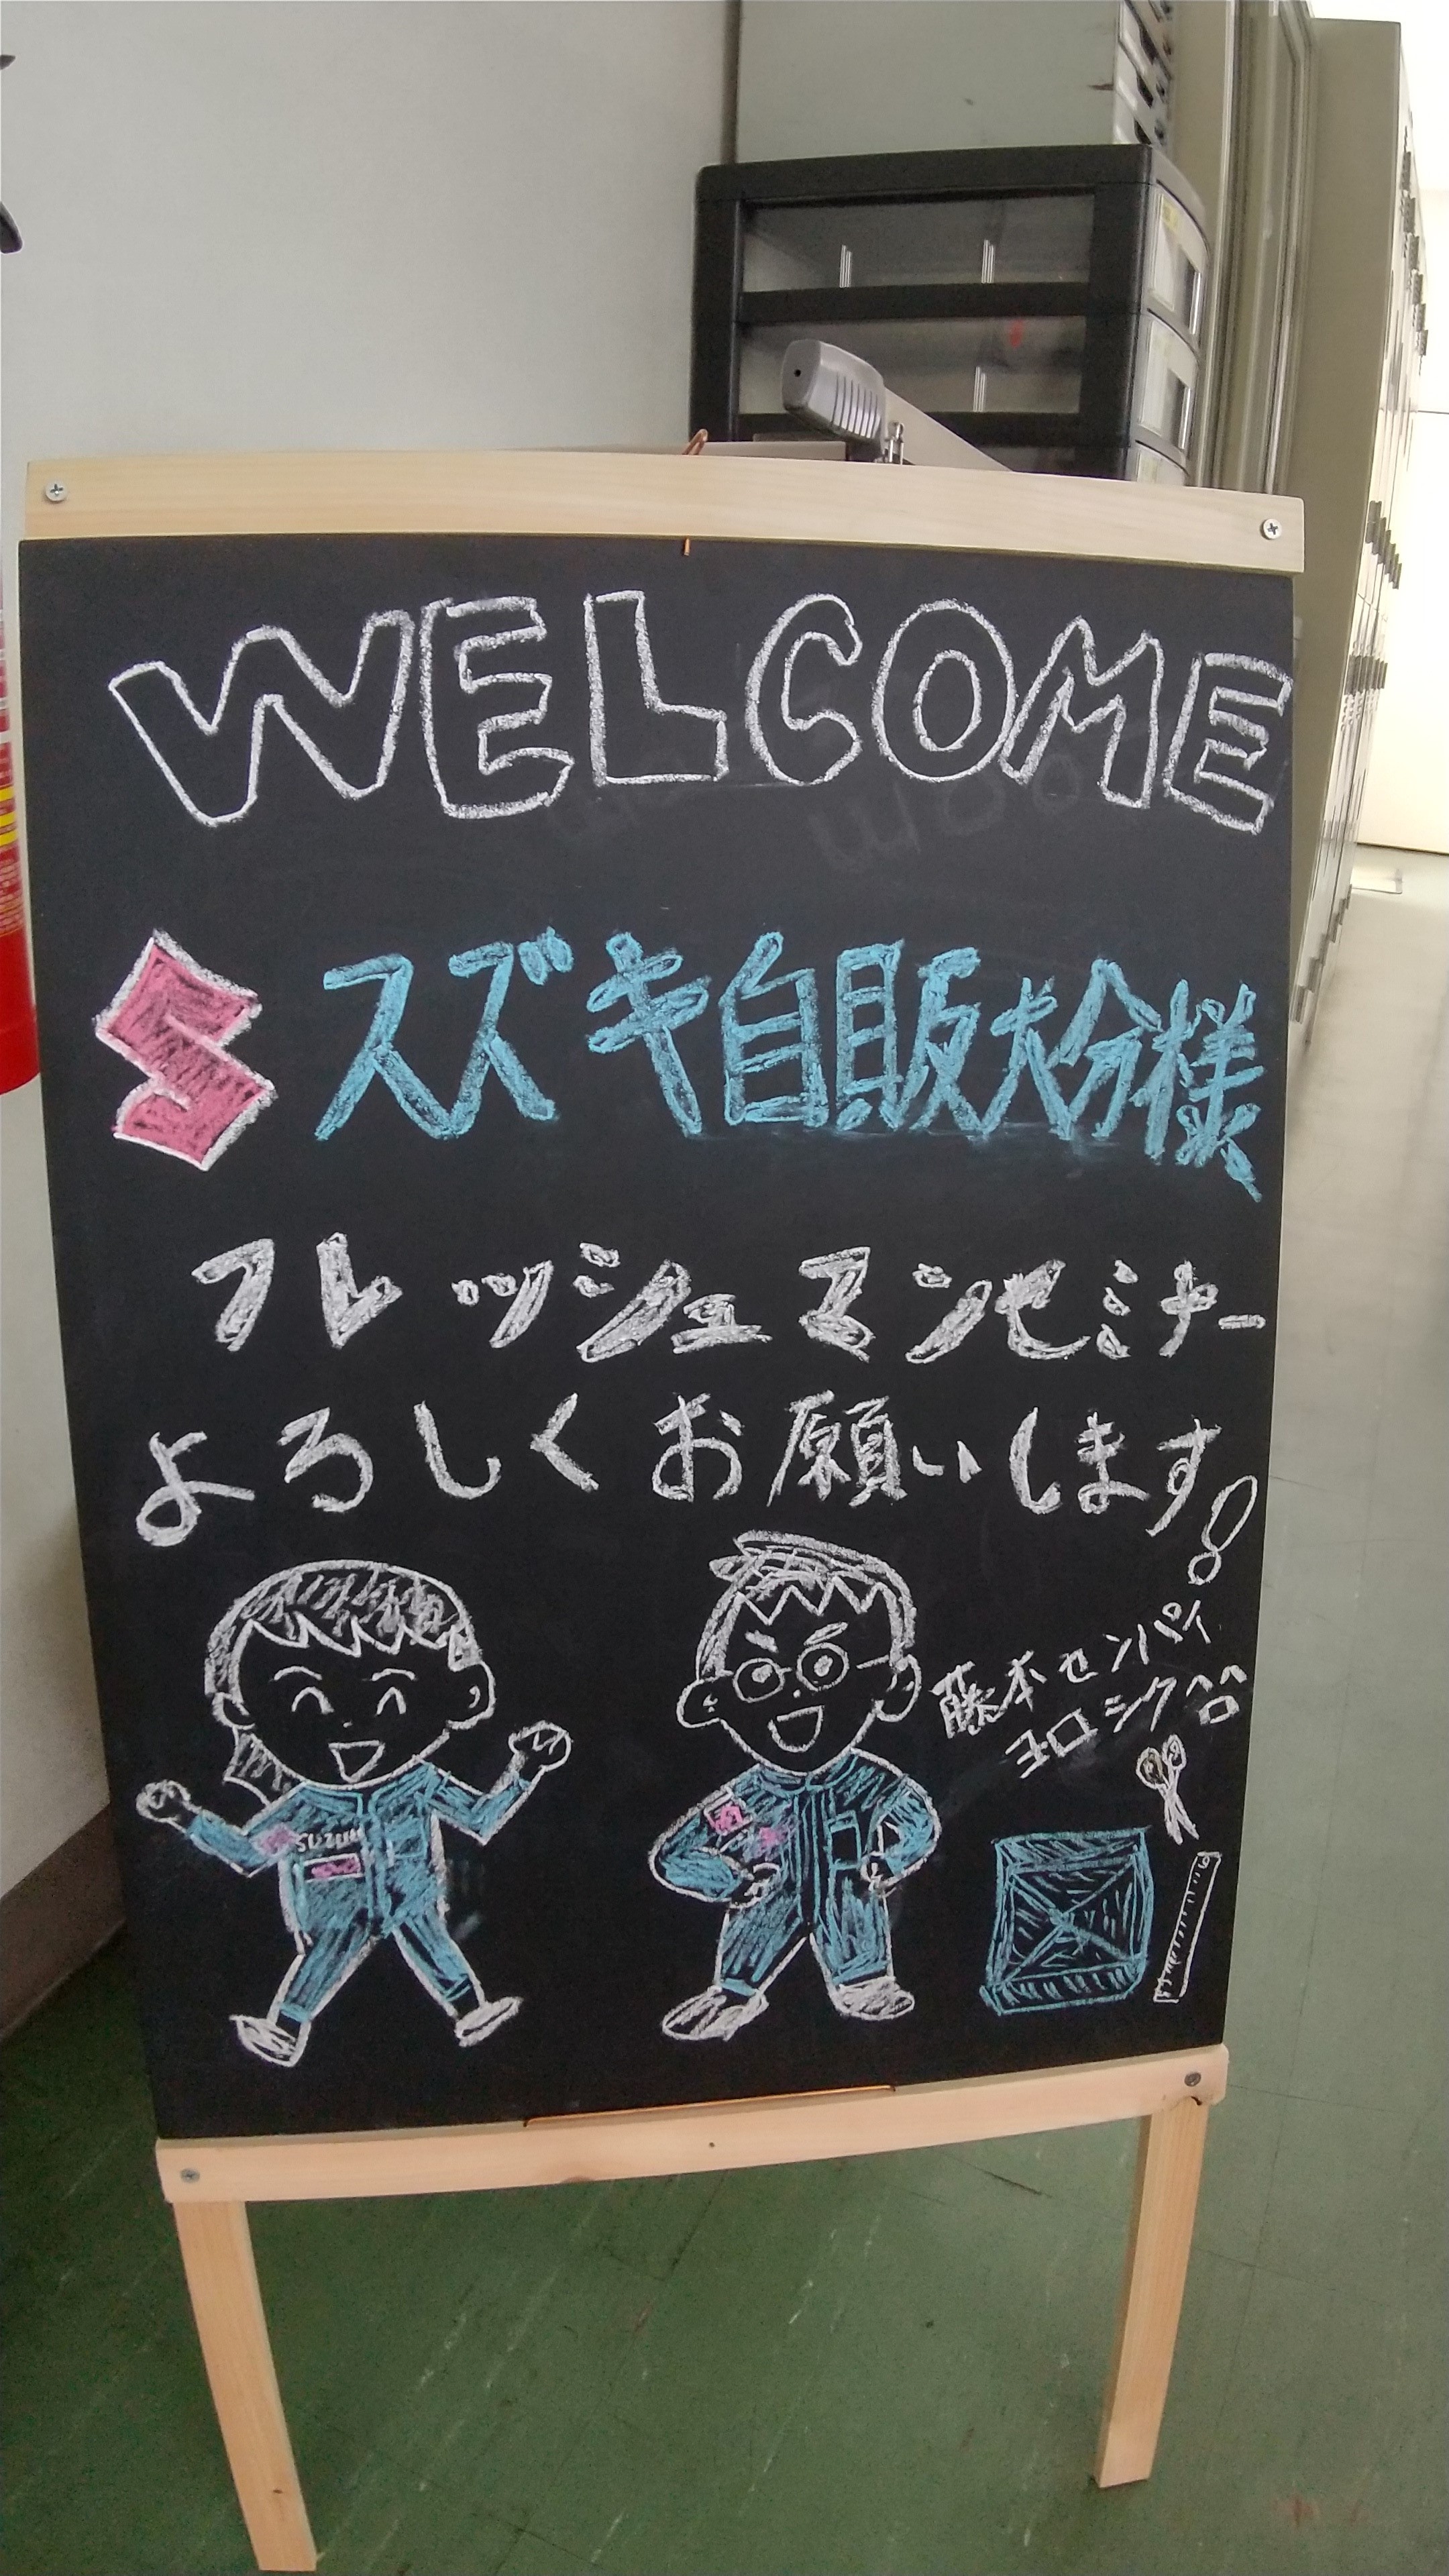 WELCOME
S スズキ自販大分様
フレッシュマンセミナー
よろしくお願いします!
藤本センパイ
ヨロシク^o^
SUZUKI